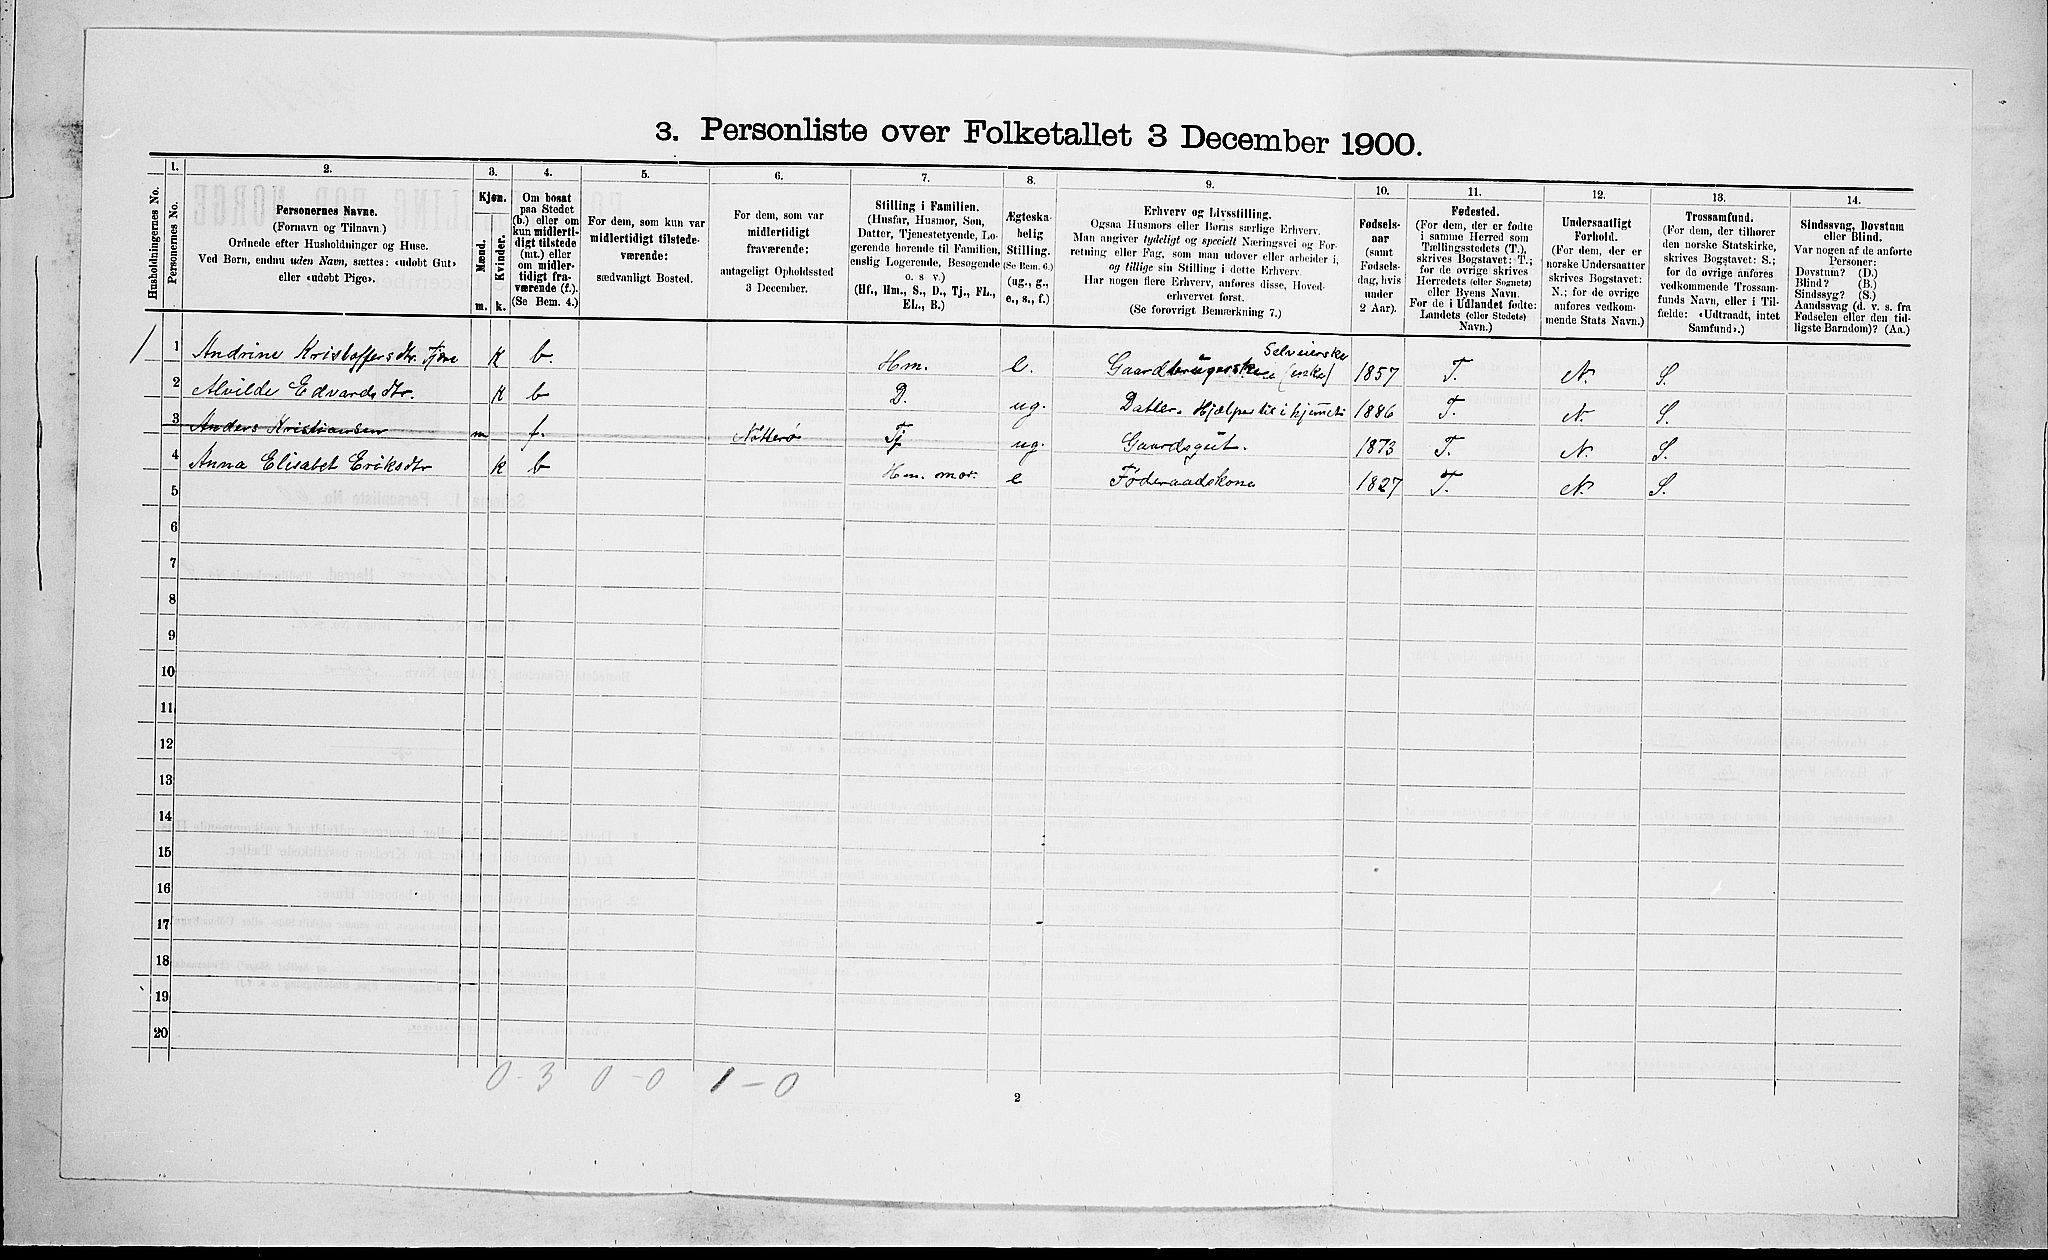 3. Personliste over Folketallet 3 December 1900.
Husholdningernes No.
1. Personernes No.
2. Personernes Navne.
(Fornavn og Tilnavn.)
Ordnede efter Husholdninger og Huse.
Ved Børn, endnu uden Navn, sættes: «udøbt Gut»
eller «udøbt Pige».
3. Kjøn.
Mænd. Kvinder.
m. k.
4. Om bosat
paa Stedet
(b.) eller om
kun midlerti-
digt tilstede
(mt.) eller
om midler-
tidigt fra-
værende (f.).
(Se Bem. 4.)
5. For dem, som kun var
midlertidigt tilstede-
værende:
sædvanligt Bosted.
6. For dem, som var
midlertidigt
fraværende:
antageligt Opholdssted
3 December.
7. Stilling i Familien.
(Husfar, Husmor, Søn,
Datter, Tjenestetyende, Lo-
gerende hørende til Familien,
enslig Logerende, Besøgende
o. s v.)
(Hf., Hm., S., D., Tj., FL.,
EL., B.)
8. Ægteska-
belig
Stilling.
(Se Bem. 6.)
(ug., g.,
e., s., f.)
9. Erhverv og Livsstilling.
Ogsaa Husmors eller Børns særlige Erhverv.
Man angiver tydeligt og specielt Næringsvei og For-
retning eller Fag, som man udøver eller arbeider i,
og tillige sin Stilling i dette Erhverv.
Har nogen flere Erhverv, anføres disse, Hoved-
erhvervet først.
(Se forøvrigt Bemærkning 7.)
10. Fødsels-
aar
(samt
Fødsels-
dag, hvis
under
2 Aar).
11. Fødested.
(For dem, der er fødte
i samme Herred som
Tællingsstedets (T.),
skrives Bogstavet: T.;
for de øvrige skrives
Herredets (eller Sognets)
eller Byens Navn.
For de i Udlandet fødte:
Landets (eller Stedets)
Navn.)
12. Undersaatligt
Forhold.
(For dem, der er
norske Undersaatter
skrives Bogstavet:
N.; for de øvrige
anføres vedkom-
mende Stats Navn.)
13. Trossamfund.
(For dem, der tilhører
den norske Statskirke,
skrives Bogstavet: S.;
for de øvrige anføres
vedkommende Trossam-
funds Navn, eller i Til-
fælde: «Udtraadt, intet
Samfund».)
14. Sindssvag, Døvstum
eller Blind.
Var nogen af de anførte
Personer:
Døvstum? (D.)
Blind? (B.)
Sindssyg? (S.)
Aandssvag (d. v. s. fra
Fødselen eller den tid-
ligste Barndom)? (Aa.)
1 1 Andrine Kristoffersdtr. k b. Hm. e. Gaardbrugerske Selveierske (enke) 1857 T. N. S.
2 Alvilde Edvardsdtr. k b D. ug. Datter. Hjælper til i hjemmet 1886 T. N. S.
3 Anders Kristiansen m f. Nøtterø Tj ug. Gaardsgut. 1873 T. N. S.
4 Anna Elisabet Eriksdtr k b Hm. mor. e Føderaadskone 1827 T. N. S.
5
6
7
8
9
10
11
12
13
14
15
16
17
18
19
20
0 - 3 0 - 0 1 - 0
2